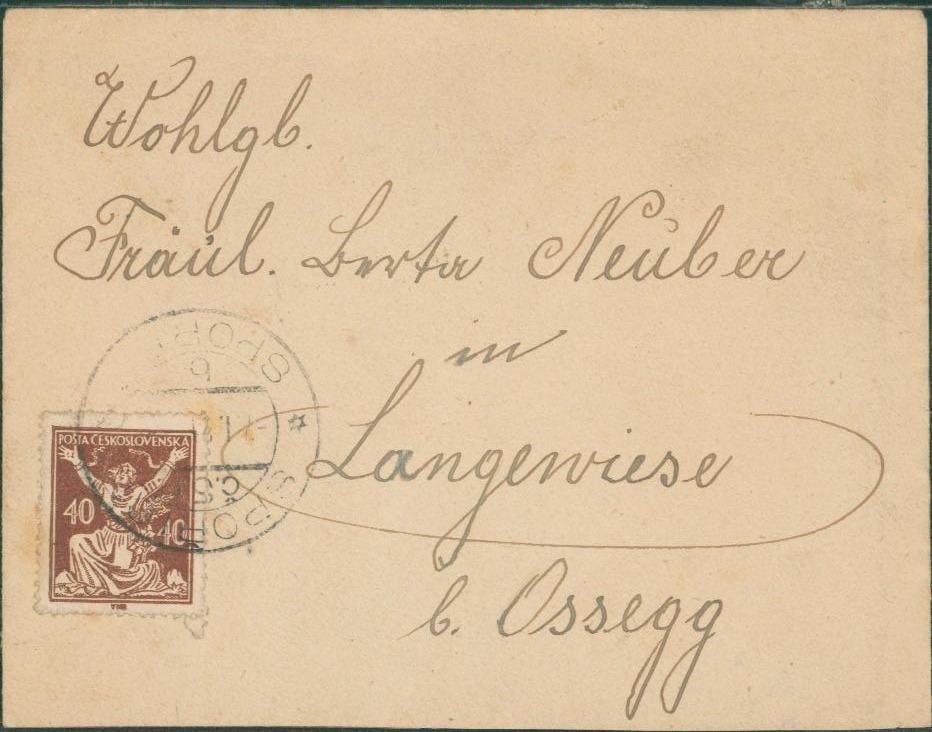 Wohlgb.
Fräul. Berta Neuber
in
Langewiese
b. Ossegg
POŠTA ČESKOSLOVENSKÁ
40 40
SPORT
6
ČS
SPOR